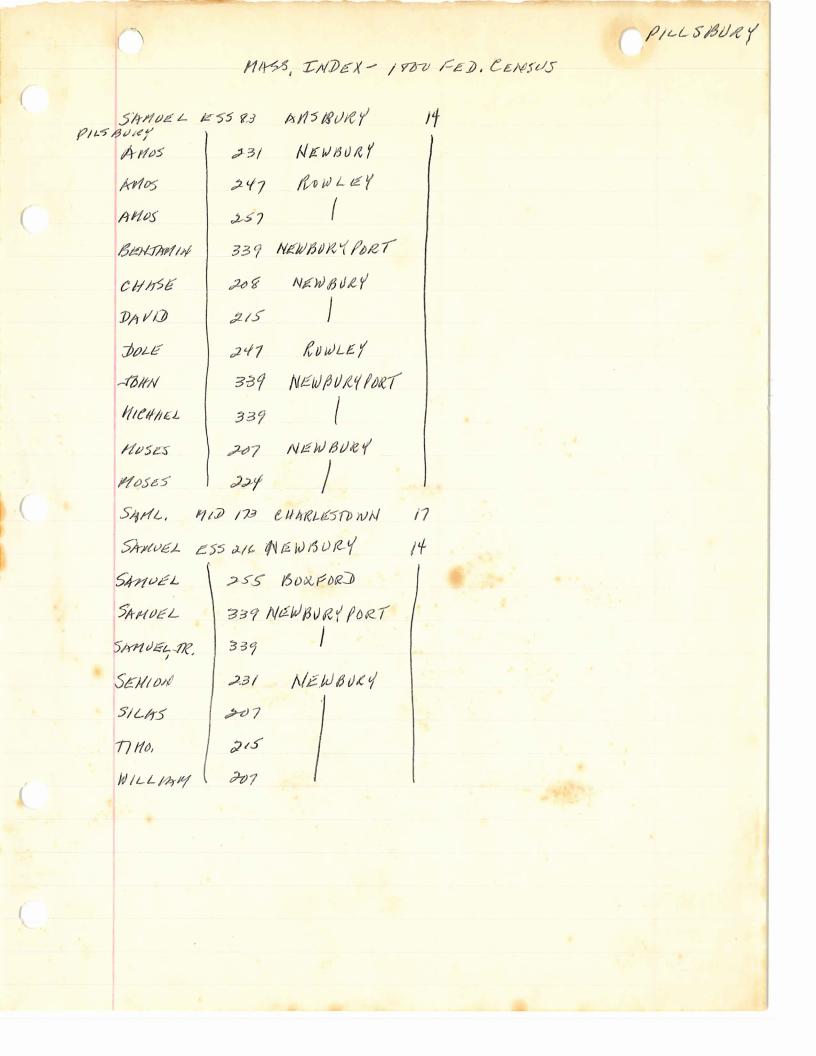 PILLSBURY
MASS. INDEX - 1800 FED. CENSUS
SAMUEL ESS 83 AMSBURY 14
PILSBURY
AMOS 231 NEWBURY
AMOS 247 ROWLEY
AMOS 257 |
BENJAMIN 339 NEWBURYPORT
CHASE 208 NEWBURY
DAVID 215 |
DOLE 247 ROWLEY
JOHN 339 NEWBURYPORT
MICHAEL 339 |
MOSES 207 NEWBURY
MOSES 224 |
SAML. MID 173 CHARLESTOWN 17
SAMUEL ESS 216 NEWBURY 14
SAMUEL 255 BOXFORD
SAMUEL 339 NEWBURYPORT
SAMUEL, JR. 339 |
SEMION 231 NEWBURY
SILAS 207 |
TIMO. 215
WILLIAM 207